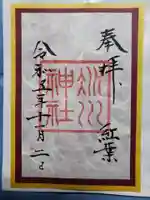 奉拝
紅葉
令和五年十一月二日
神社